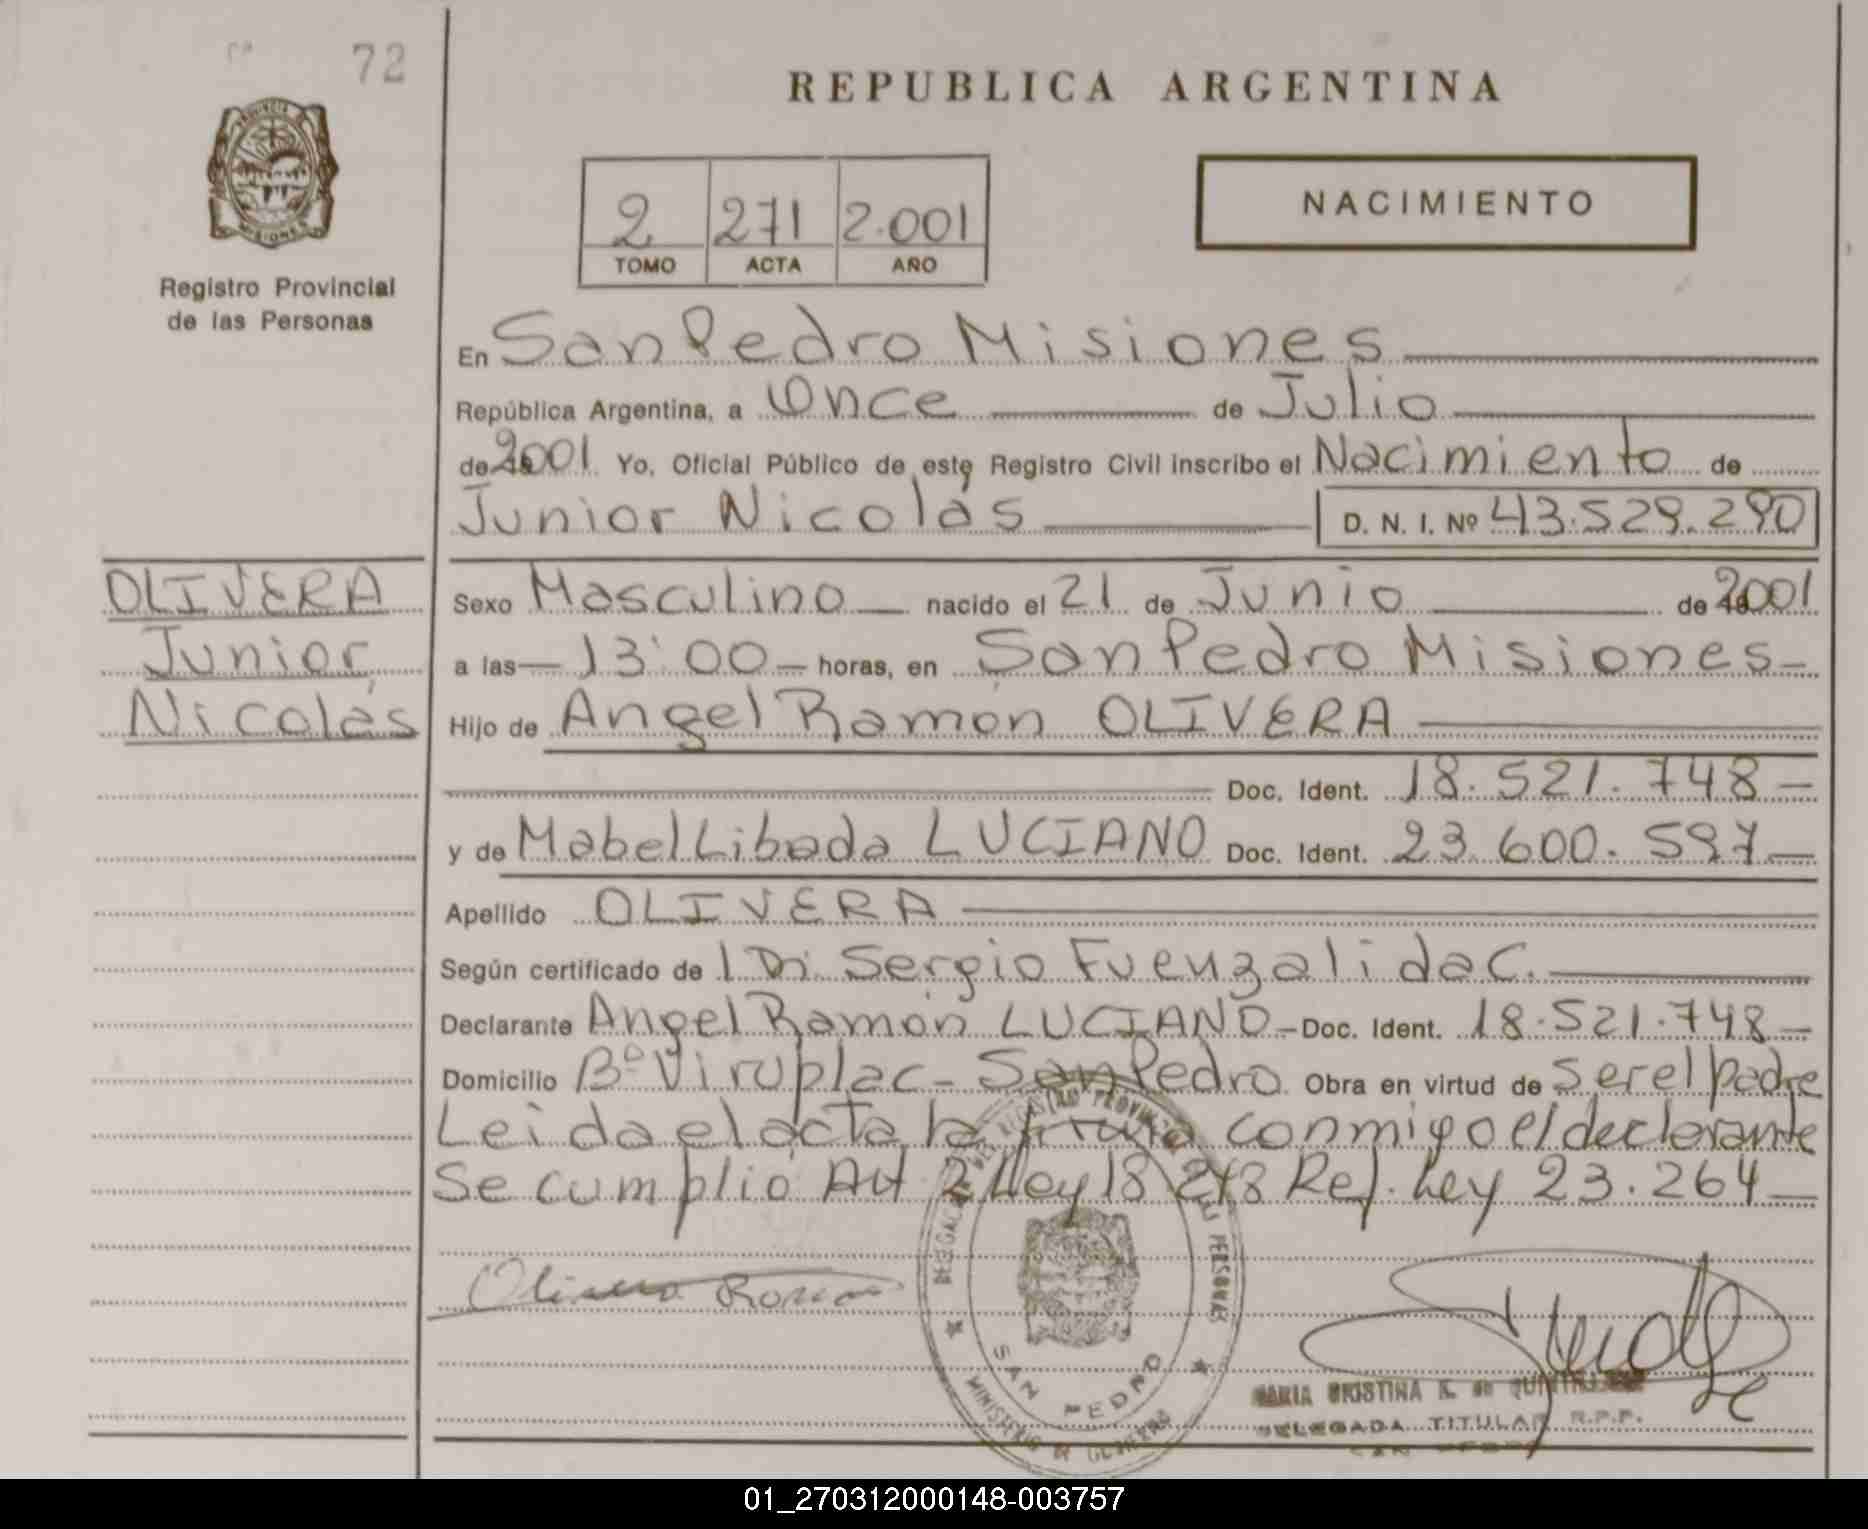 72
REPUBLICA ARGENTINA
PROVINCIA DE MISIONES
Registro Provincial
de las Personas
2 271 2.001
TOMO ACTA AÑO
NACIMIENTO
En San Pedro Misiones
República Argentina, a Once de Julio
de 2001 Yo, Oficial Público de este Registro Civil inscribo el Nacimiento de
Junior Nicolás D. N. I. Nº 43.529.290
OLIVERA
Junior
Nicolás
Sexo Masculino nacido el 21 de Junio de 2001
a las 13:00 horas, en San Pedro Misiones
Hijo de Angel Ramón OLIVERA
Doc. Ident. 18.521.748
y de Mabel Libada LUCIANO Doc. Ident. 23.600.597
Apellido OLIVERA
Según certificado de Sergio Fuenzalida C.
Declarante Angel Ramón LUCIANO Doc. Ident. 18.521.748
Domicilio Bº Viruplac - San Pedro Obra en virtud de ser el padre
Leida el acta la firma conmigo el declarante
Se cumplió Art 2 Ley 18 248 Ref. Ley 23.264
Olivera Ramon
DELEGACION DEL REGISTRO PROVINCIAL DE LAS PERSONAS
SAN PEDRO
MINISTERIO DE GOBIERNO
MARIA CRISTINA K. de
DELEGADA TITULAR R.P.P.
SAN PEDRO
01_270312000148-003757